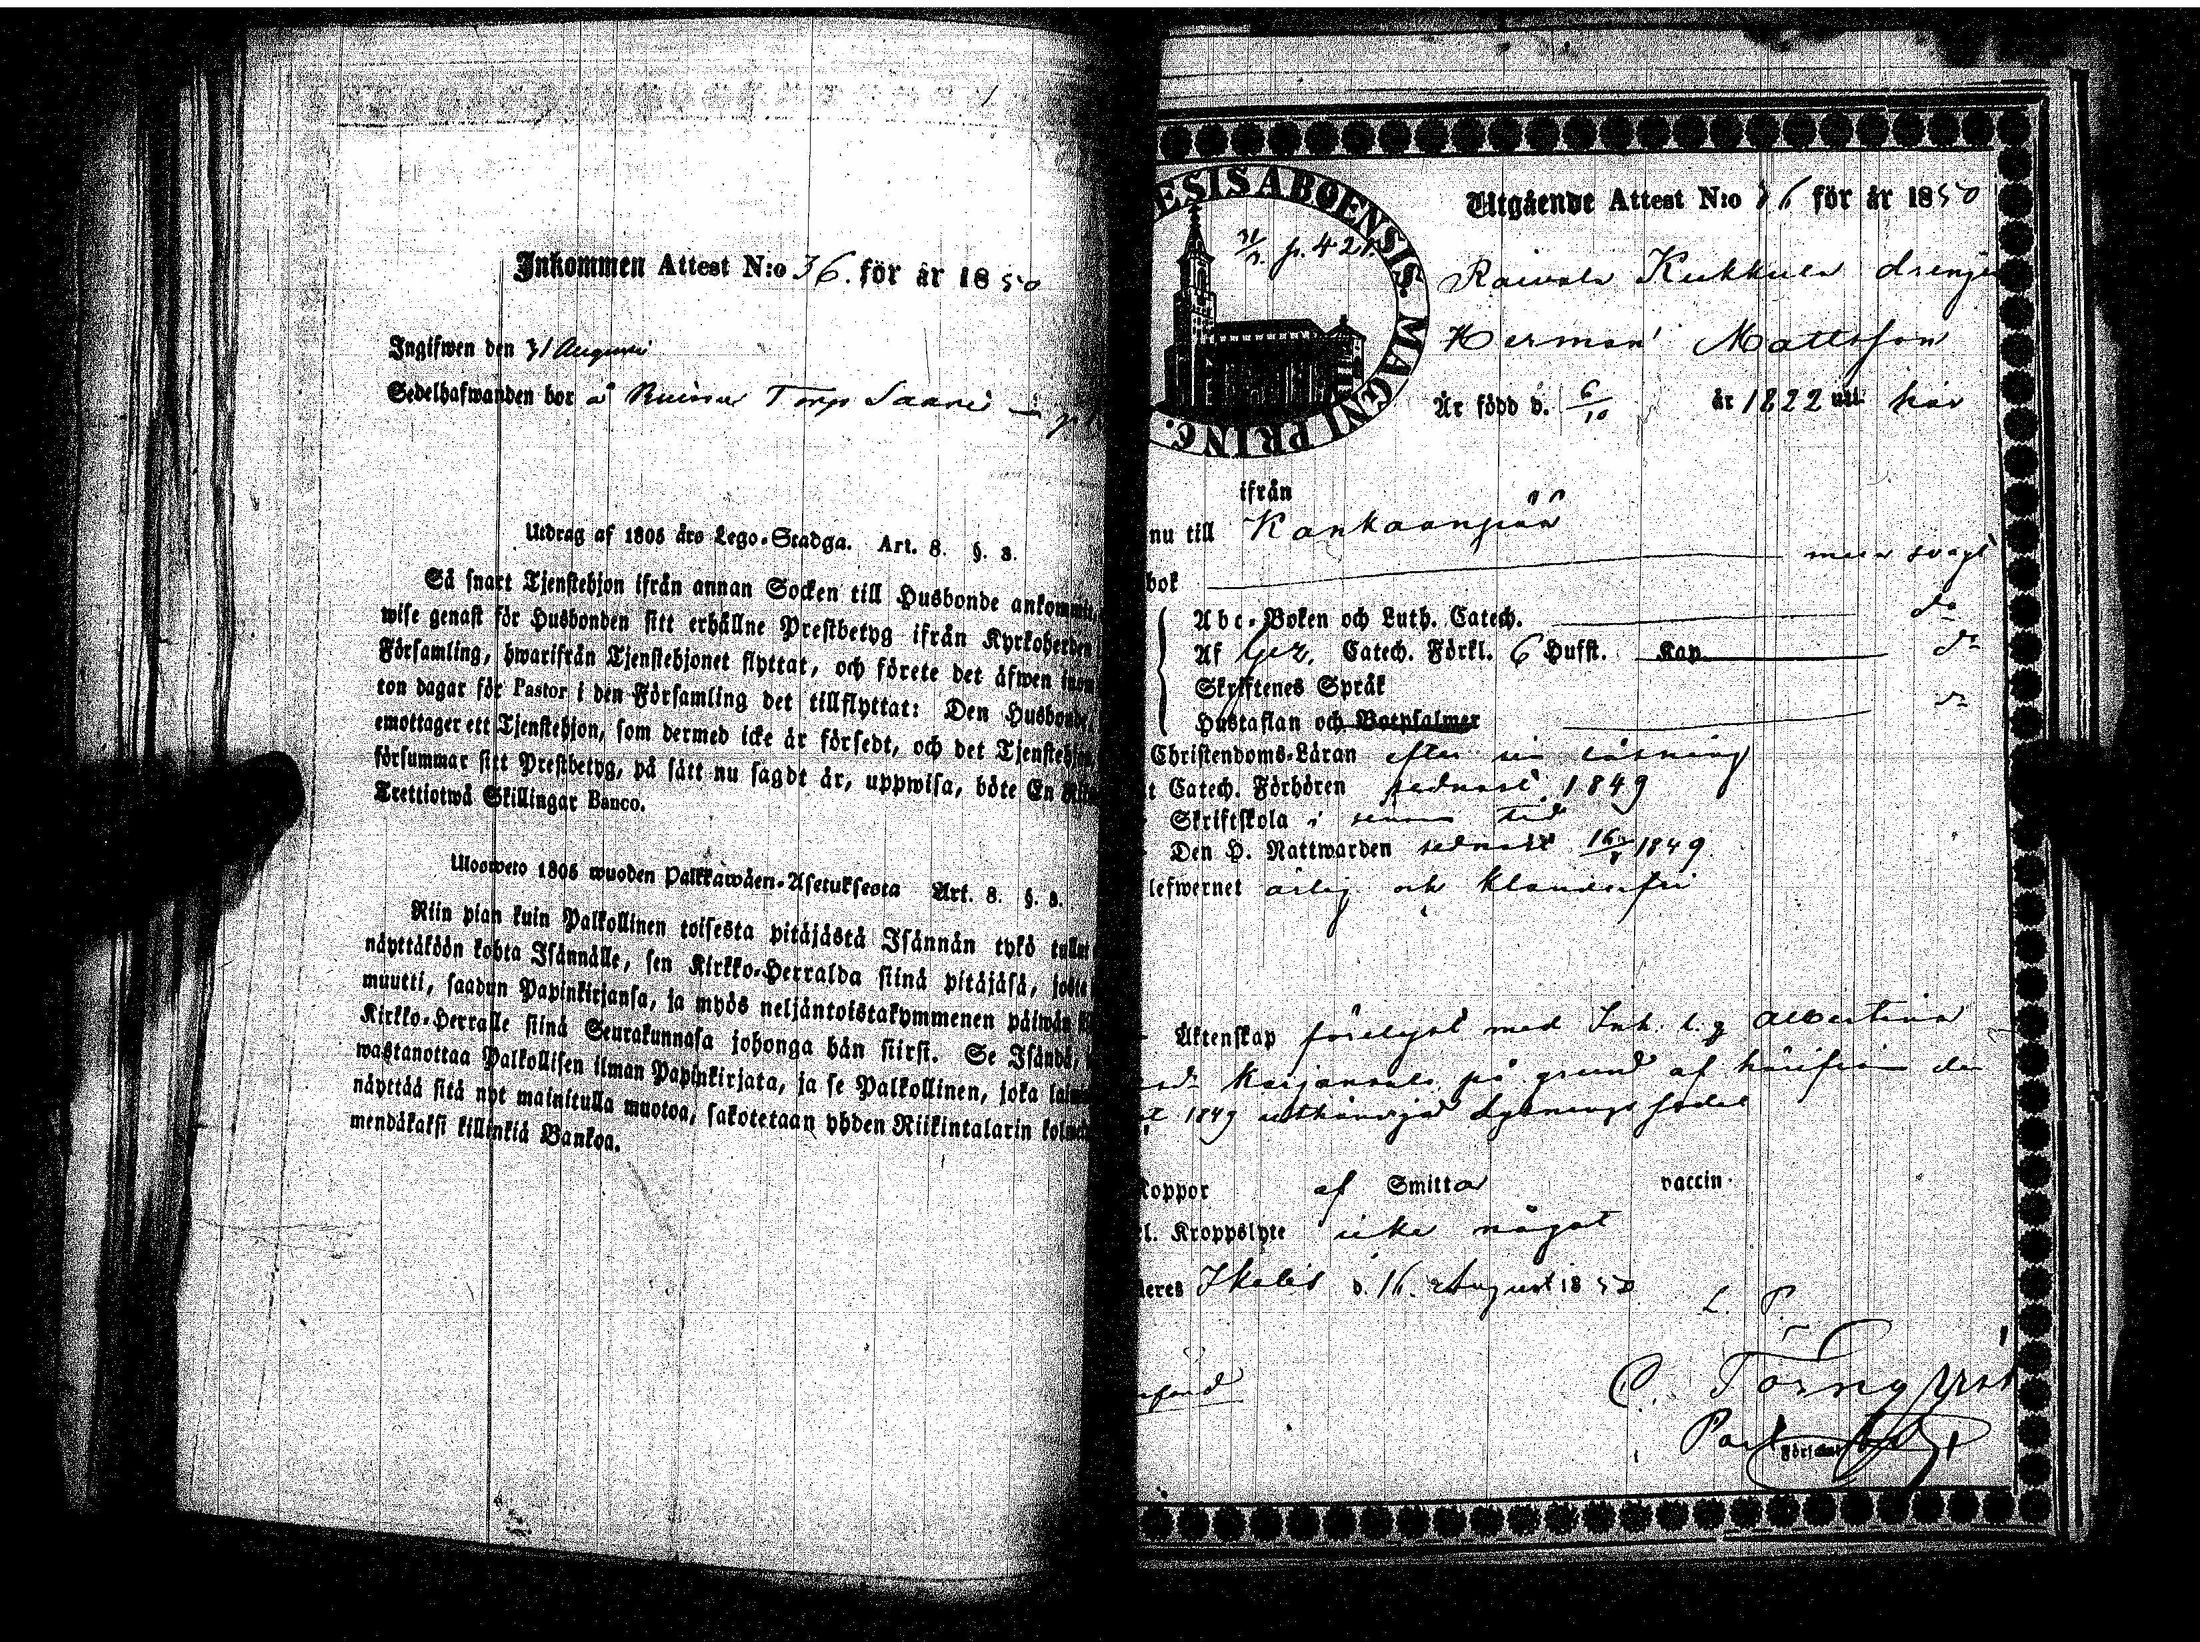 Inkommen Attest N:o 36. för år 1850
Ingifwen den 31 Augusti
Sedelhafwanden bor å Torp Saari
Utdrag af 1805 års Lego-Stadga. Art. 8. §. 3.
Så snart Tjenstehjon ifrån annan Socken till Husbonde ankommit,
wise genast för Husbonden sitt erhållne Prestbetyg ifrån Kyrkoherden
Församling, hwarifrån Tjenstehjonet flyttat, och förete det äfwen inom
ton dagar för Pastor i den Församling det tillflyttat: Den Husbonde,
emottager ett Tjenstehjon, som dermed icke är försedt, och det Tjenstehjon,
försummar sitt Prestbetyg, på sätt nu sagdt är, uppwisa, böte En
Trettiotwå Skillingar Banco.
Ulosweto 1805 wuoden Palkkawäen-Asetuksesta Art. 8. §. 3.
Niin pian kuin Palkollinen toisesta pitäjästä Isännän tykö tullut
näyttäköön kohta Isännälle, sen Kirkko-Herralda siinä pitäjäsä, josta
muutti, saadun Papinkirjansa, ja myös neljäntoistakymmenen päiwän
Kirkko-Herralle siinä Seurakunnasa johonga hän siirsi. Se Isändä,
wastanottaa Palkollisen ilman Papinkirjata, ja se Palkollinen, joka
näyttää sitä nyt mainitulla muotoa, sakotetaan yhden Riikintalarin
mendäkaksi killinkiä Bankoa.
ESIS ABOENSIS. MAGNI PRINC.
p. 421.
Utgående Attest N:o 36 för år 1850
Raivala Kukkula drengen
Herman Mattsson
Är född d. 6/10 år 1822 uti här
ifrån
nu till Kankaanpää
bok
Abc-Boken och Luth. Catech. do
Af Catech. Förkl. 6 Hufst. Kap. do
Skriftenes Språk
Hustaflan och Botpsalmer do
Christendoms-Läran efter sin läsning
t Catech. Förhören sednast 1849
Skriftskola i sinom tid
Den H. Nattwarden sednast 1849
lefwernet ärlig och klanderfri
Äktenskap förelyst med Inh. Albertina
på grund af härifrån den
1849 Lysningssedel
Koppor af Smitta vaccin.
l. Kroppslyte icke något
eres Ikalis d. 16 August 1850
L. P.
C. Törnqvist